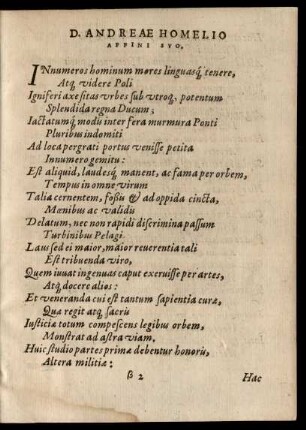 D. ANDREAE HOMELIO
AFFINI SVO.
INnumeros hominum mores linguasq́; tenere,
Atq; videre Poli
Igniferi axe sitas vrbes sub vtroq;, potentum
Splendida regna Ducum;
Iactatumq́; modù inter fera murmura Ponti
Pluribus indomiti
Ad loca pergrati portus venisse petita
Innumero gemitu:
Est aliquid, laudesq́; manent, ac fama per orbem,
Tempus in omne virum
Talia cernentem, fossis & ad oppida cincta,
Mœnibus ac validis
Delatum, nec non rapidi discrimina passum
Turbinibus Pelagi.
Laus sed ei maior, maior reuerentia tali
Est tribuenda viro,
Quem iuuat ingenuas caput exeruisse per artes,
Atq; docere alios:
Et veneranda cui est tantum sapientia curæ,
Qua regit atq; sacris
Iusticia totum compescens legibus orbem,
Monstrat ad astra viam.
Huic studio partes primæ debentur honoris,
Altera militiæ:
B 2
Hac